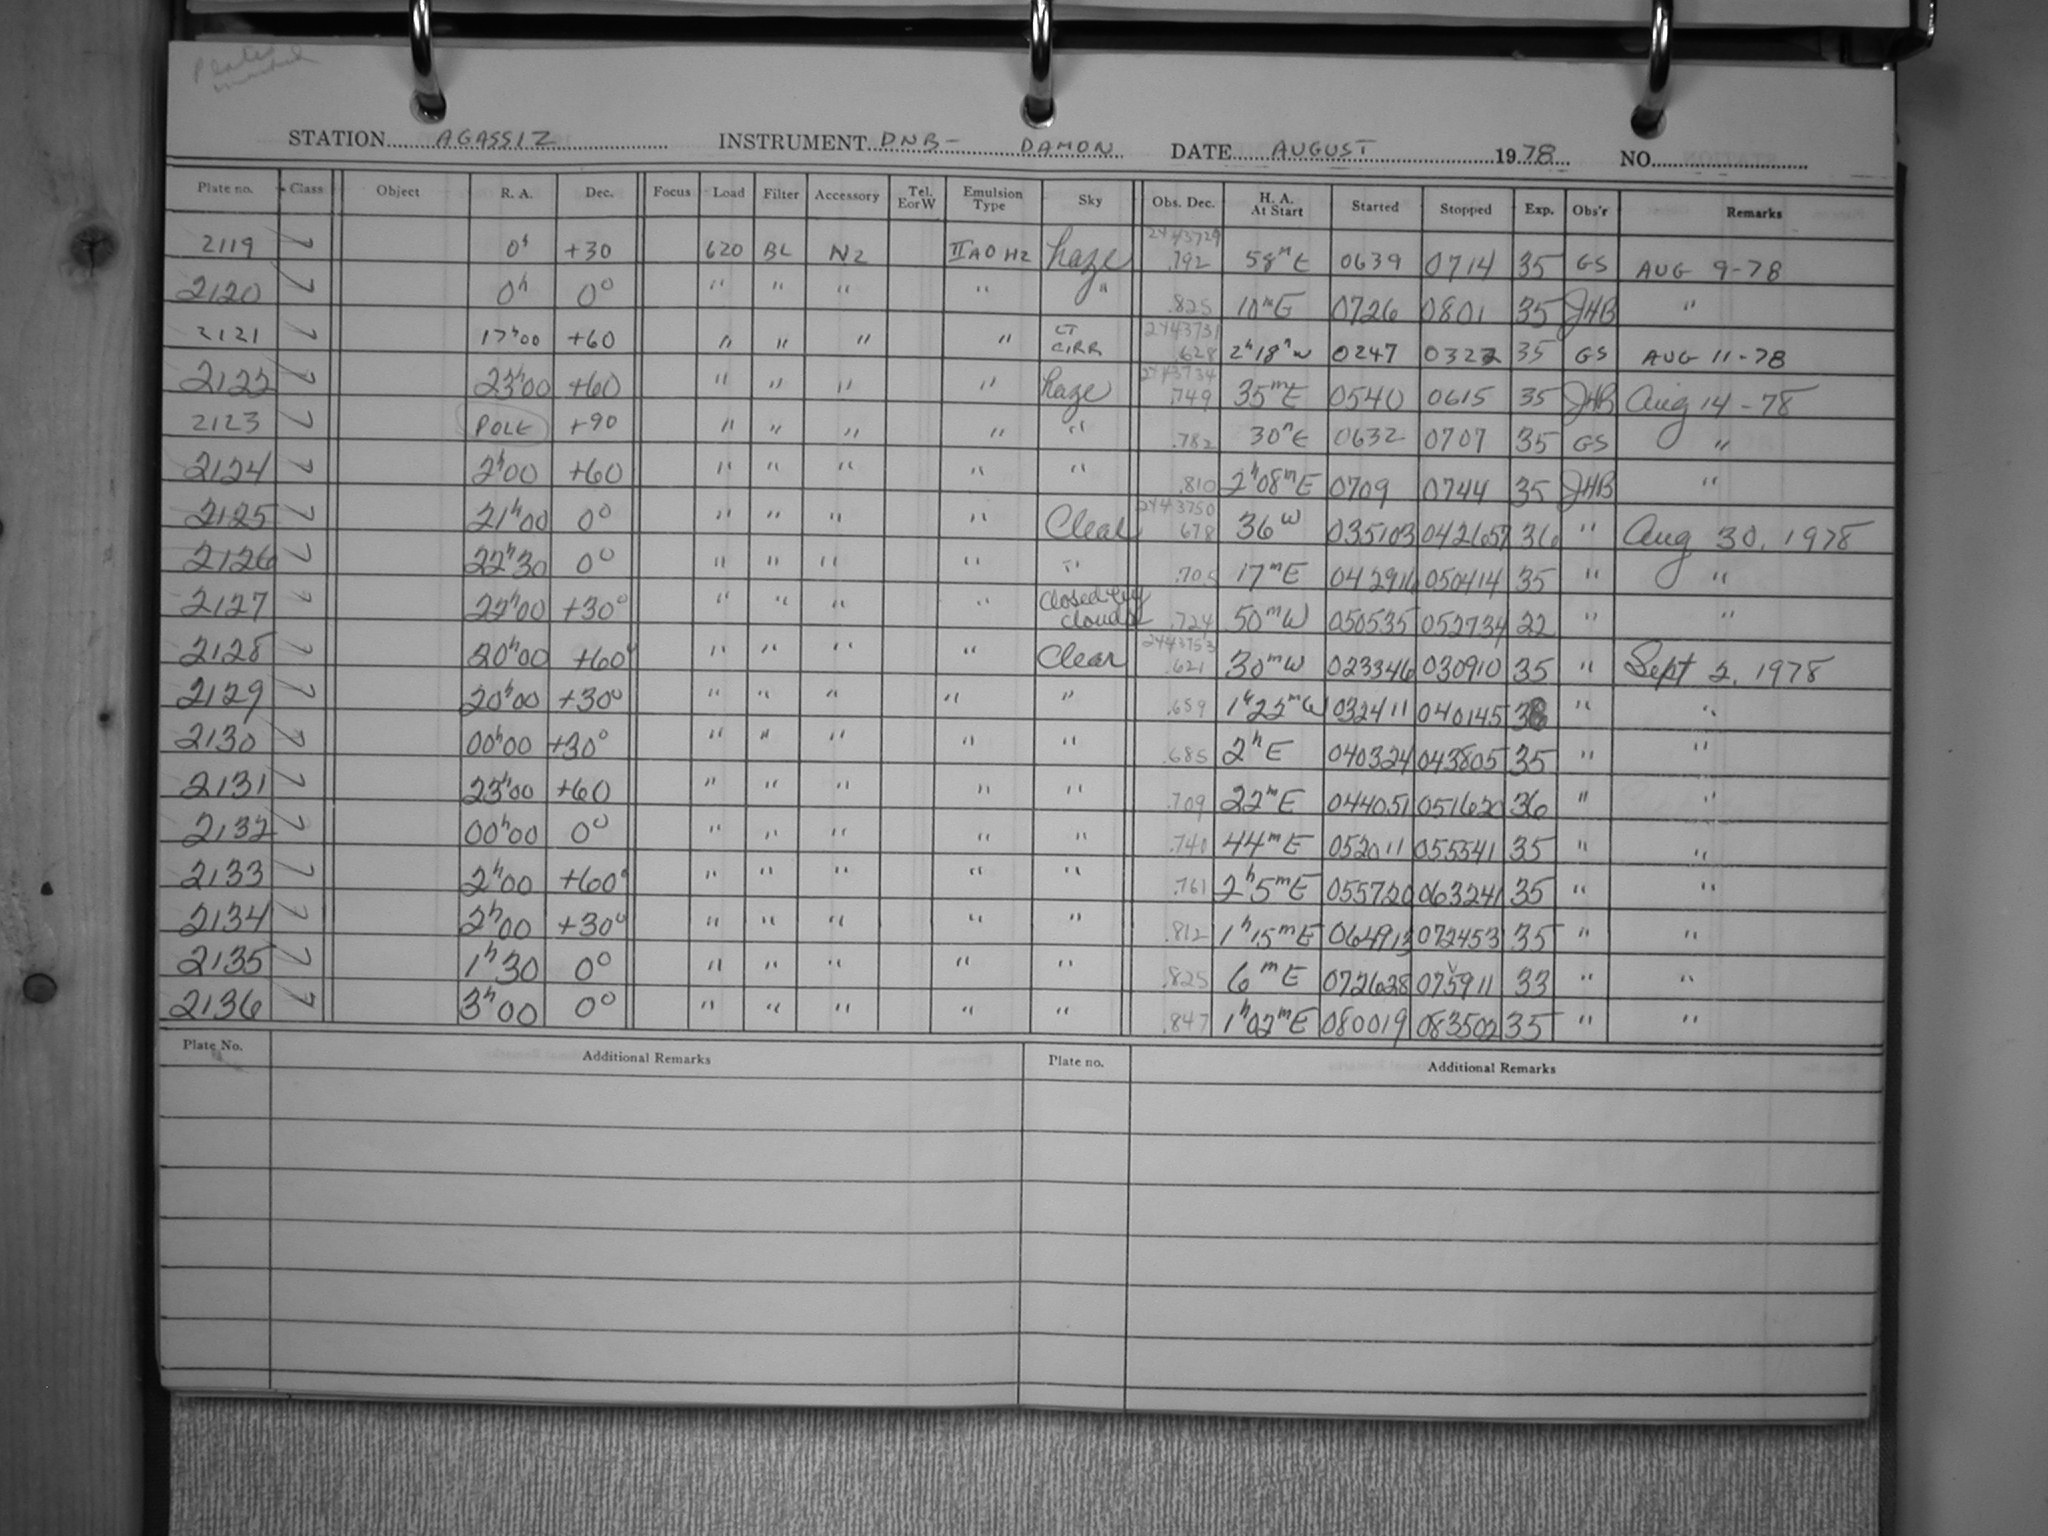 Plates
STATION AGASSIZ INSTRUMENT DNB- DAMON DATE AUGUST 1978 NO.
Plate no. Class Object R. A. Dec. Focus Load Filter Accessory Tel. E or W Emulsion Type Sky Obs. Dec. H. A. At Start Started Stopped Exp. Obs'r Remarks
2119 7 0h +30 620 BL N2 IIAO H2 haze 2443729 .792 58mE 0639 0714 35 GS AUG 9-78
2120 7 0h 0° " " " " " .825 10mE 0726 0801 35 JHB "
2121 7 17h00 +60 " " " " LT CIRR 2443731 .628 2h18mW 0247 0322 35 GS AUG 11-78
2122 7 23h00 +60 " " " " haze 2443734 .749 35mE 0540 0615 35 JHB Aug 14-78
2123 7 POLE +90 " " " " " .782 30mE 0632 0707 35 GS "
2124 7 2h00 +60 " " " " " .810 2h08mE 0709 0744 35 JHB "
2125 7 21h00 0° " " " " Clear 2443750 678 36W 035103 042657 36 " Aug 30, 1978
2126 7 22h30 0° " " " " " .705 17mE 042916 050414 35 " "
2127 7 22h00 +30° " " " " Closed by clouds .724 50mW 050535 052734 22 " "
2128 7 20h00 +60° " " " " Clear 2443753 .621 30mW 023346 030910 35 " Sept 2, 1978
2129 7 20h00 +30° " " " " " .659 1h22mW 032411 040145 38 " "
2130 7 00h00 +30° " " " " " .685 2hE 040324 043805 35 " "
2131 7 23h00 +60 " " " " " .709 22mE 044051 051620 36 " "
2132 7 00h00 0° " " " " " .740 44mE 052011 055541 35 " "
2133 7 2h00 +60° " " " " " .761 2h5mE 055720 063241 35 " "
2134 7 2h00 +30° " " " " " .812 1h15mE 064913 072453 35 " "
2135 7 1h30 0° " " " " " .825 6mE 072628 075911 33 " "
2136 7 3h00 0° " " " " " .847 1h02mE 080019 083502 35 " "
Plate No. Additional Remarks Plate no. Additional Remarks